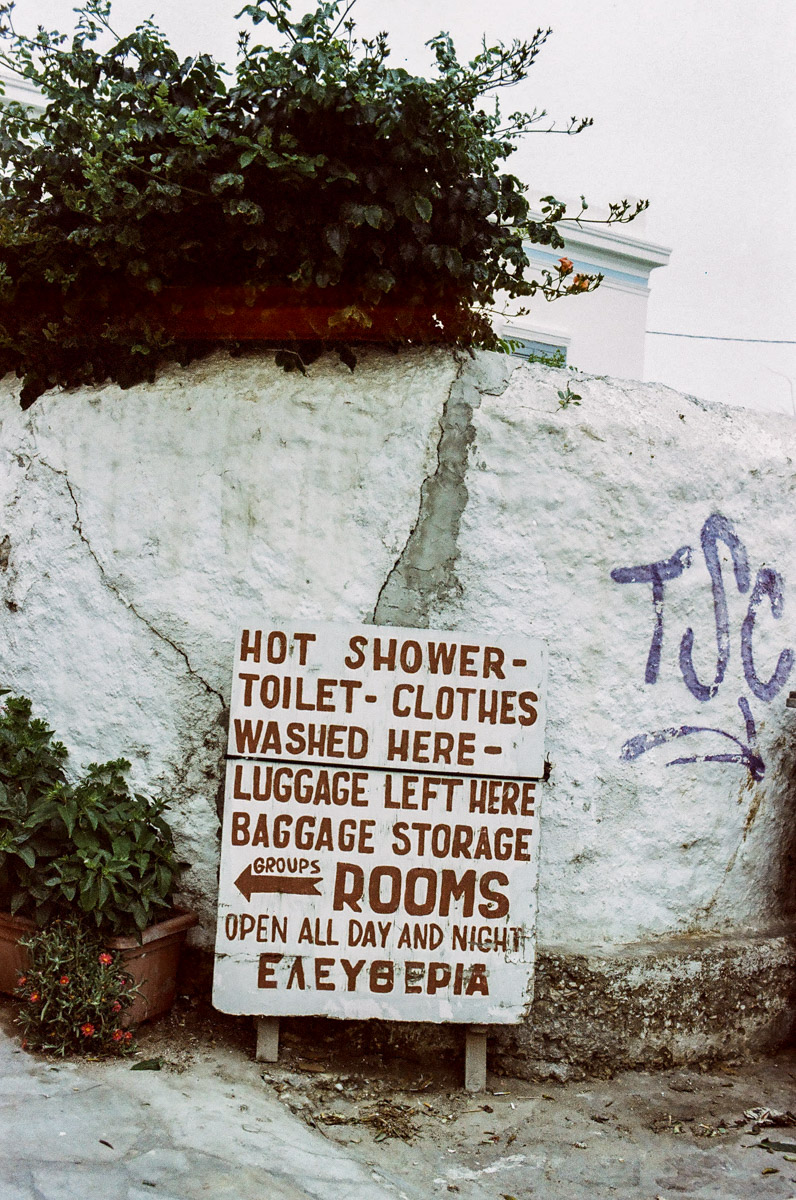 HOT SHOWER-
TOILET- CLOTHES
WASHED HERE-
LUGGAGE LEFT HERE
BAGGAGE STORAGE
GROUPS
ROOMS
OPEN ALL DAY AND NIGHT
ΕΛΕΥΘΕΡΙΑ
TSC